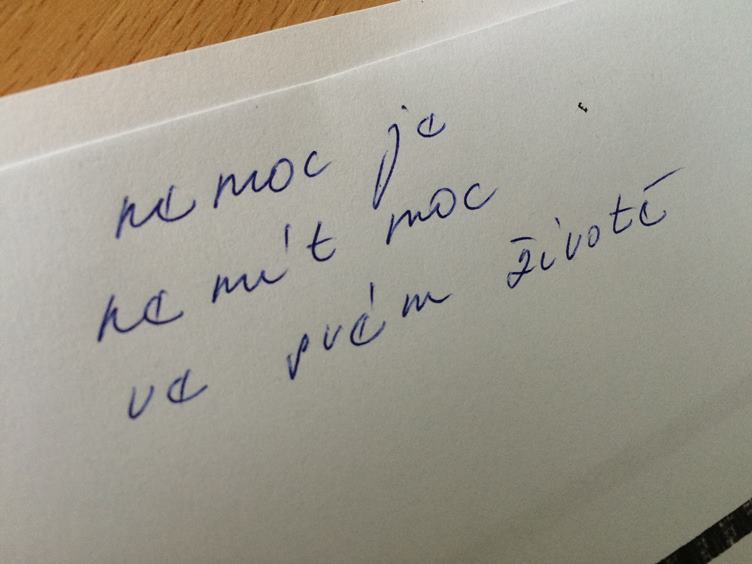 ne moc je
ne mít moc
ve svém životě